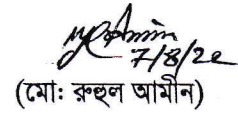 7/8/22
(মো: রুহুল আমীন)